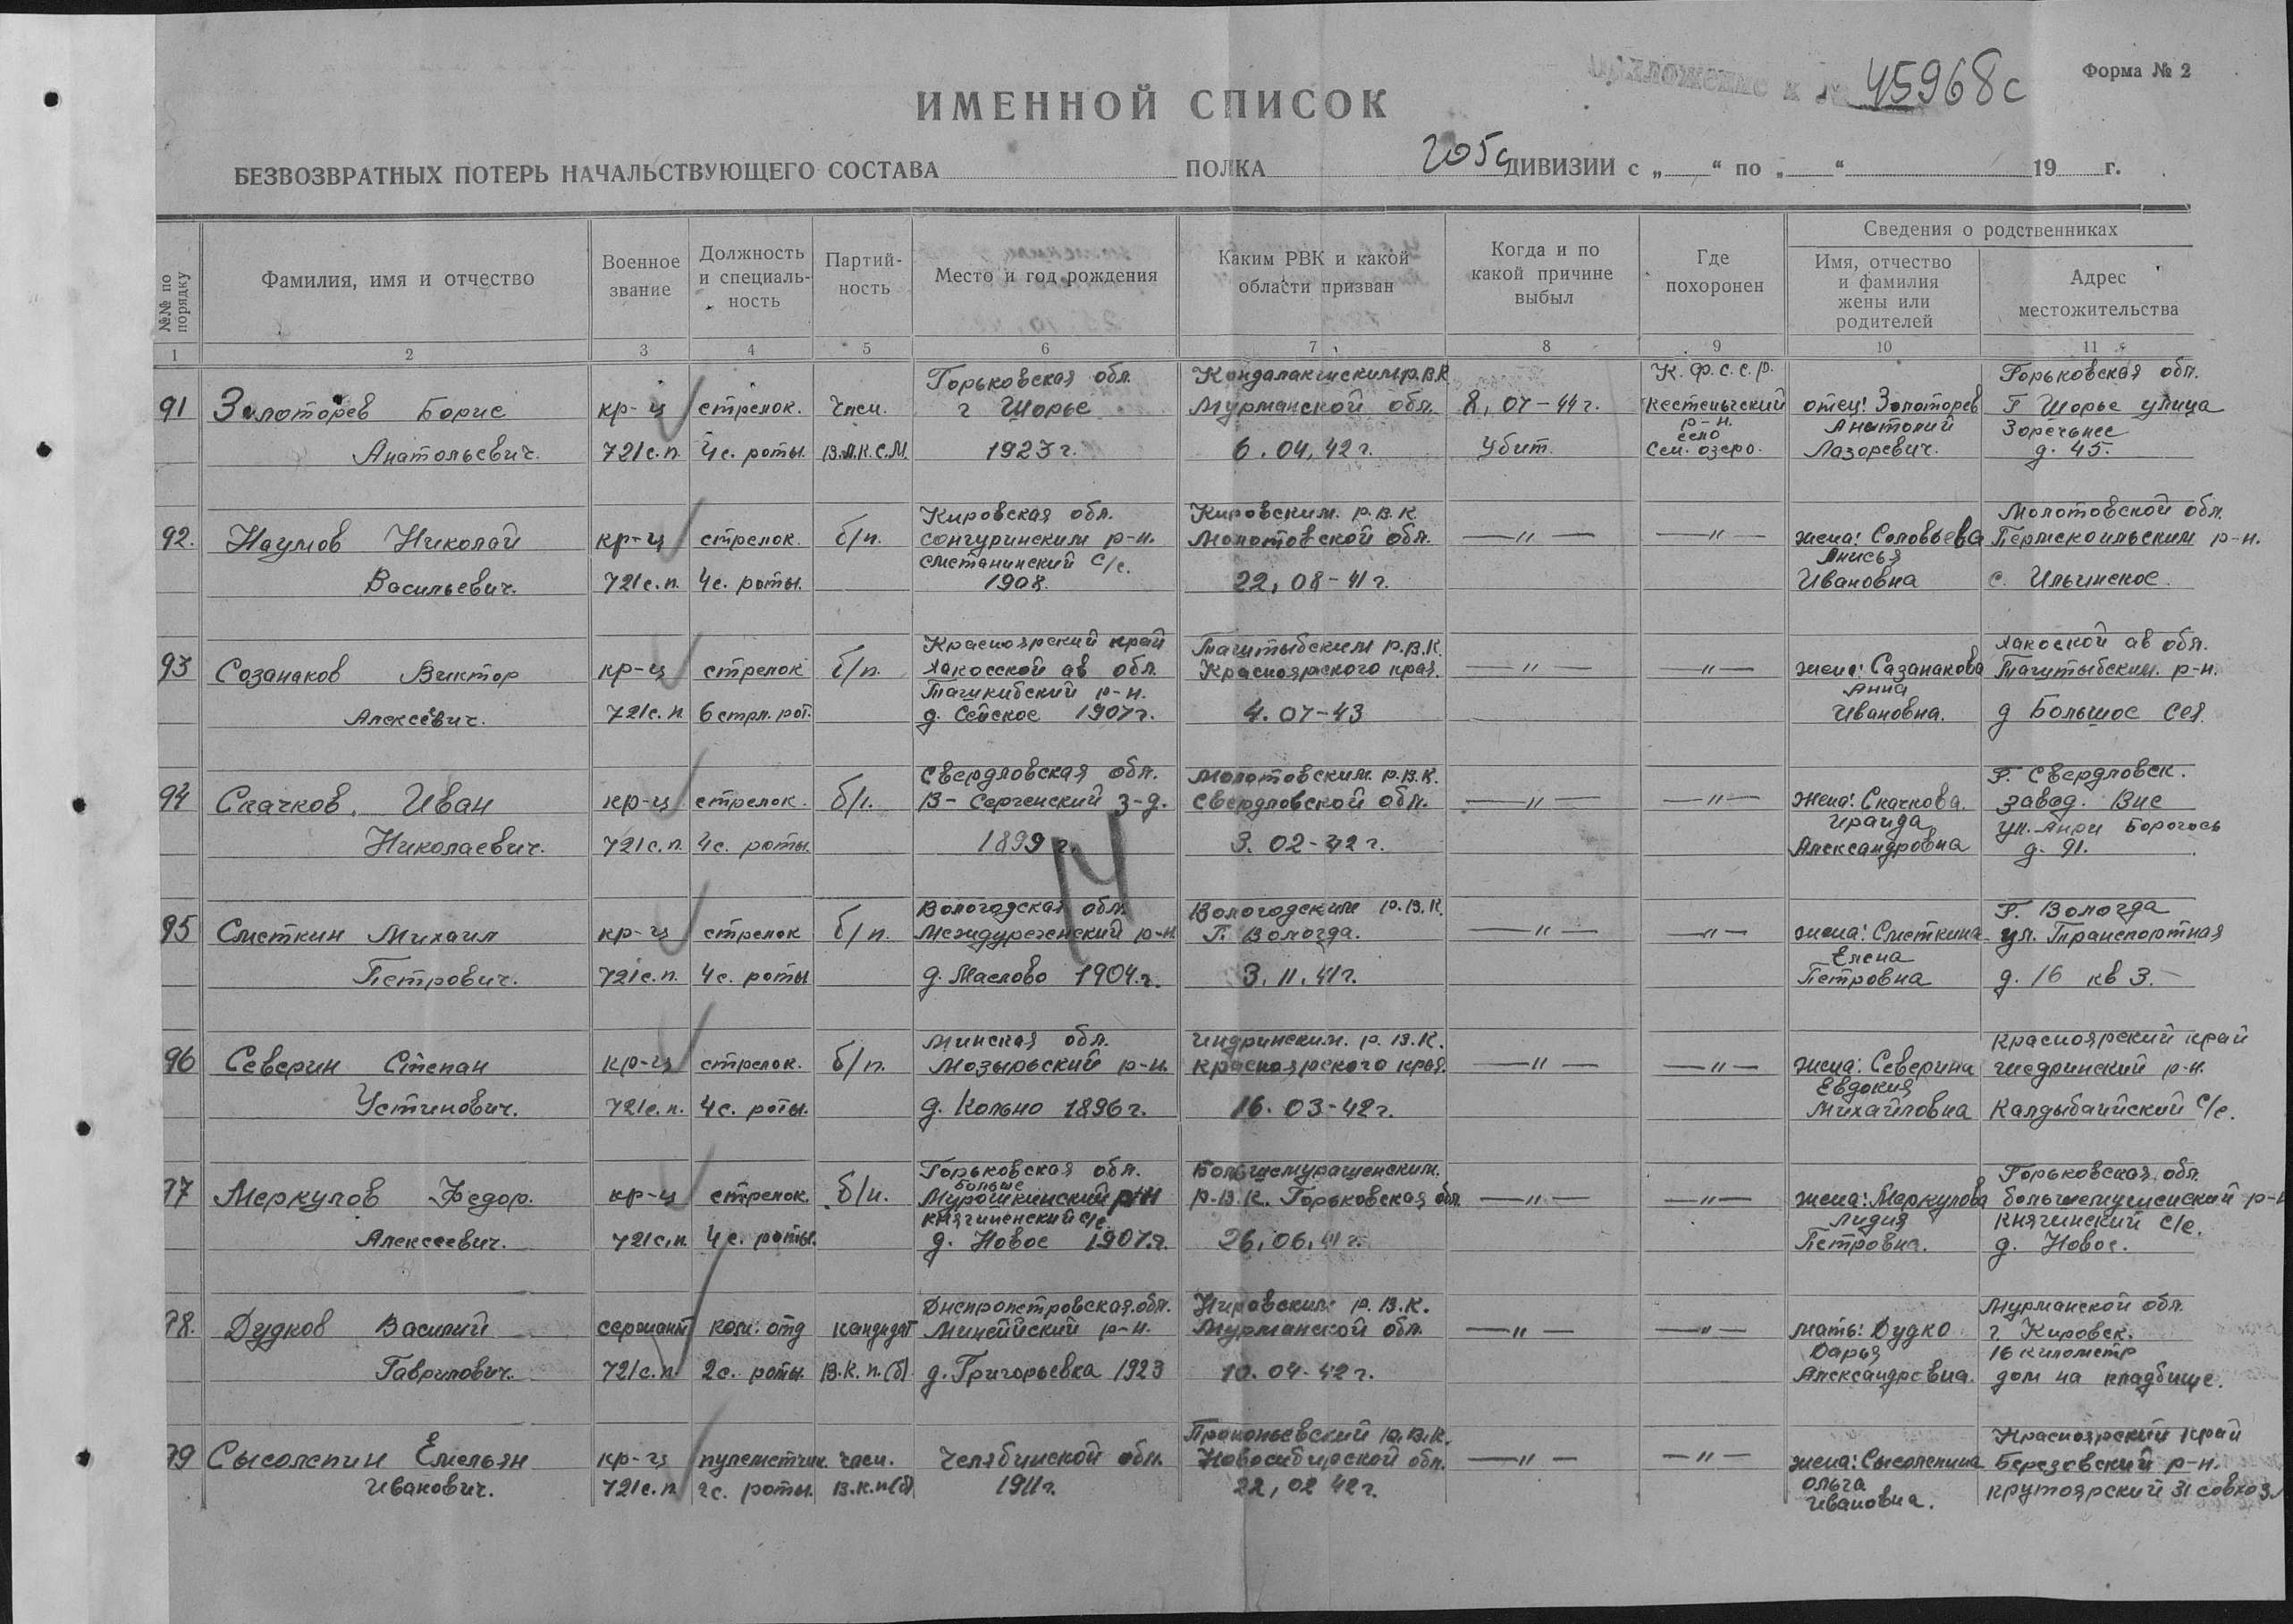 Приложение к № 45968с
Форма № 2
ИМЕННОЙ СПИСОК
БЕЗВОЗВРАТНЫХ ПОТЕРЬ НАЧАЛЬСТВУЮЩЕГО СОСТАВА ПОЛКА 205с ДИВИЗИИ с „ “ по „ “ 19 г.
№№ по порядку
Фамилия, имя и отчество
Военное звание
Должность и специаль-ность
Партий-ность
Место и год рождения
Каким РВК и какой области призван
Когда и по какой причине выбыл
Где похоронен
Сведения о родственниках
Имя, отчество и фамилия жены или родителей
Адрес местожительства
1 2 3 4 5 6 7 8 9 10 11
Горьковская обл. Кандалакшским р.в.к К.ф.с.с.р. Горьковская обл.
91 Золоторев Борис кр-ц стрелок. Член. г Шорье Мурманской обл. 8, 07-44 г. Кестеньгский отец: Золоторев Г Шорье улица
р-н. Анатолий Заречьнее
село
Анатольевич. 721 с.п. 4 с. роты. В.Л.К.С.М. 1923 г. 6. 04. 42 г. Убит. Сен. озеро. Лазоревич. д. 45.
Кировская обл. Кировским. р.в.к. Молотовской обл.
92. Наумов Николай кр-ц стрелок. б/п. сонгуринским р-н. Молотовской обл. —〃— —〃— жена: Соловьева Пермскоильским р-н.
сметанинский с/с. Анисья
Васильевич. 721 с.п. 4 с. роты. 1908. 22, 08-41 г. Ивановна с. Ильинское.
Красноярский край Таштыбским р.в.к. хакоской ав обл.
93 Созанаков Виктор кр-ц стрелок б/п. хакосской ав обл. Красноярского края. —〃— —〃— жена: Сазанакова Таштыбским. р-н.
Ташкибский р-н. Анна
Алексеевич. 721 с.п. 6 стрл. рот. д. Сейское 1907 г. 4. 07-43 Ивановна. д Большое Сея.
Свердловская обл. Молотовским р.в.к. Г. Свердловск.
94 Скачков. Иван кр-ц стрелок. б/п. В-Сергенский з-д. Свердловской обл. —〃— —〃— жена: Скачкова. завод. Вис
Ираида ул. Анри Борогось
Николаевич. 721 с.п. 4 с. роты. 1899 г. 3. 02-42 г. Александровна д. 91.
Вологодская обл. Вологодским р.в.к. Г. Вологда
95 Сметкин Михаил кр-ц стрелок б/п. Междуреженский р-н Г. Вологда. —〃— —〃— жена: Сметкина ул. Транспортная
Елена
Петрович. 721 с.п. 4 с. роты д. Маслово 1904. г. 3. 11. 41 г. Петровна д. 16 кв 3.
Минская обл. Индринским. р.в.к. Красноярский край
96 Северин Степан кр-ц стрелок. б/п. Мозырьский р-н. Красноярского края. —〃— —〃— жена: Северина шедринский р-н.
Евдокия
Устинович. 721 с.п. 4 с. роты. д. Кольно 1896 г. 16. 03-42 г. Михайловна Калдыбаийский с/с.
Горьковская обл. Большемурашенским. Горьковская обл.
больше
97 Меркулов Федор. кр-ц стрелок. б/п. Мурошкинский р-н р.в.к. Горьковская обл. —〃— —〃— жена: Меркулова большемушенский р-н
княгиненский с/с. Лидия княгинский с/с.
Алексеевич. 721 с.п. 4 с. роты. д. Новое 1907. г. 26, 06, 41 г. Петровна. д. Новое.
Днепропетровская обл. Кировским р.в.к. Мурманской обл.
98. Дудков Василий сержант ком. отд кандидат Мицейский р-н. Мурманской обл. —〃— —〃— мать: Дудко г. Кировск.
Дарья 16 километр
Гаврилович. 721 с.п 2 с. роты. В.К.п.(б). д. Григорьевка 1923 10. 04-42 г. Александровна. дом на кладбище.
Прокопьевский р.в.к. Красноярский край
99 Сысолепин Емельян кр-ц пулеметчик. член. Челябинской обл. Новосибирской обл. —〃— —〃— жена: Сысолепина Березовский р-н.
Ольга
Иванович. 721 с.п 2 с. роты. В.к.п(б) 1911 г. 22, 02 42 г. Ивановна. крутоярский 31 совхоз